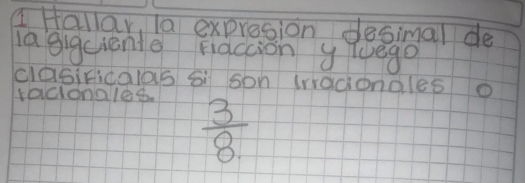 1 Hallar la expresion desimal de
la sigciente fracción y luego
clasificalas si son irracionales o
racionales.
3
8